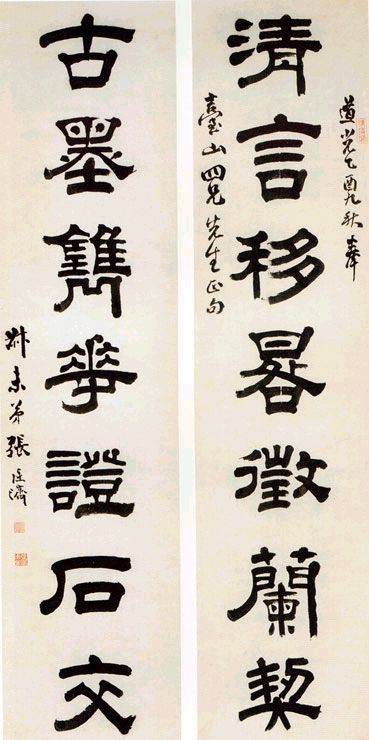 道光乙酉九秋奉
清言移晷徵蘭契
臺山四兄先生正句
古墨儁華證石交
尗未弟張廷濟